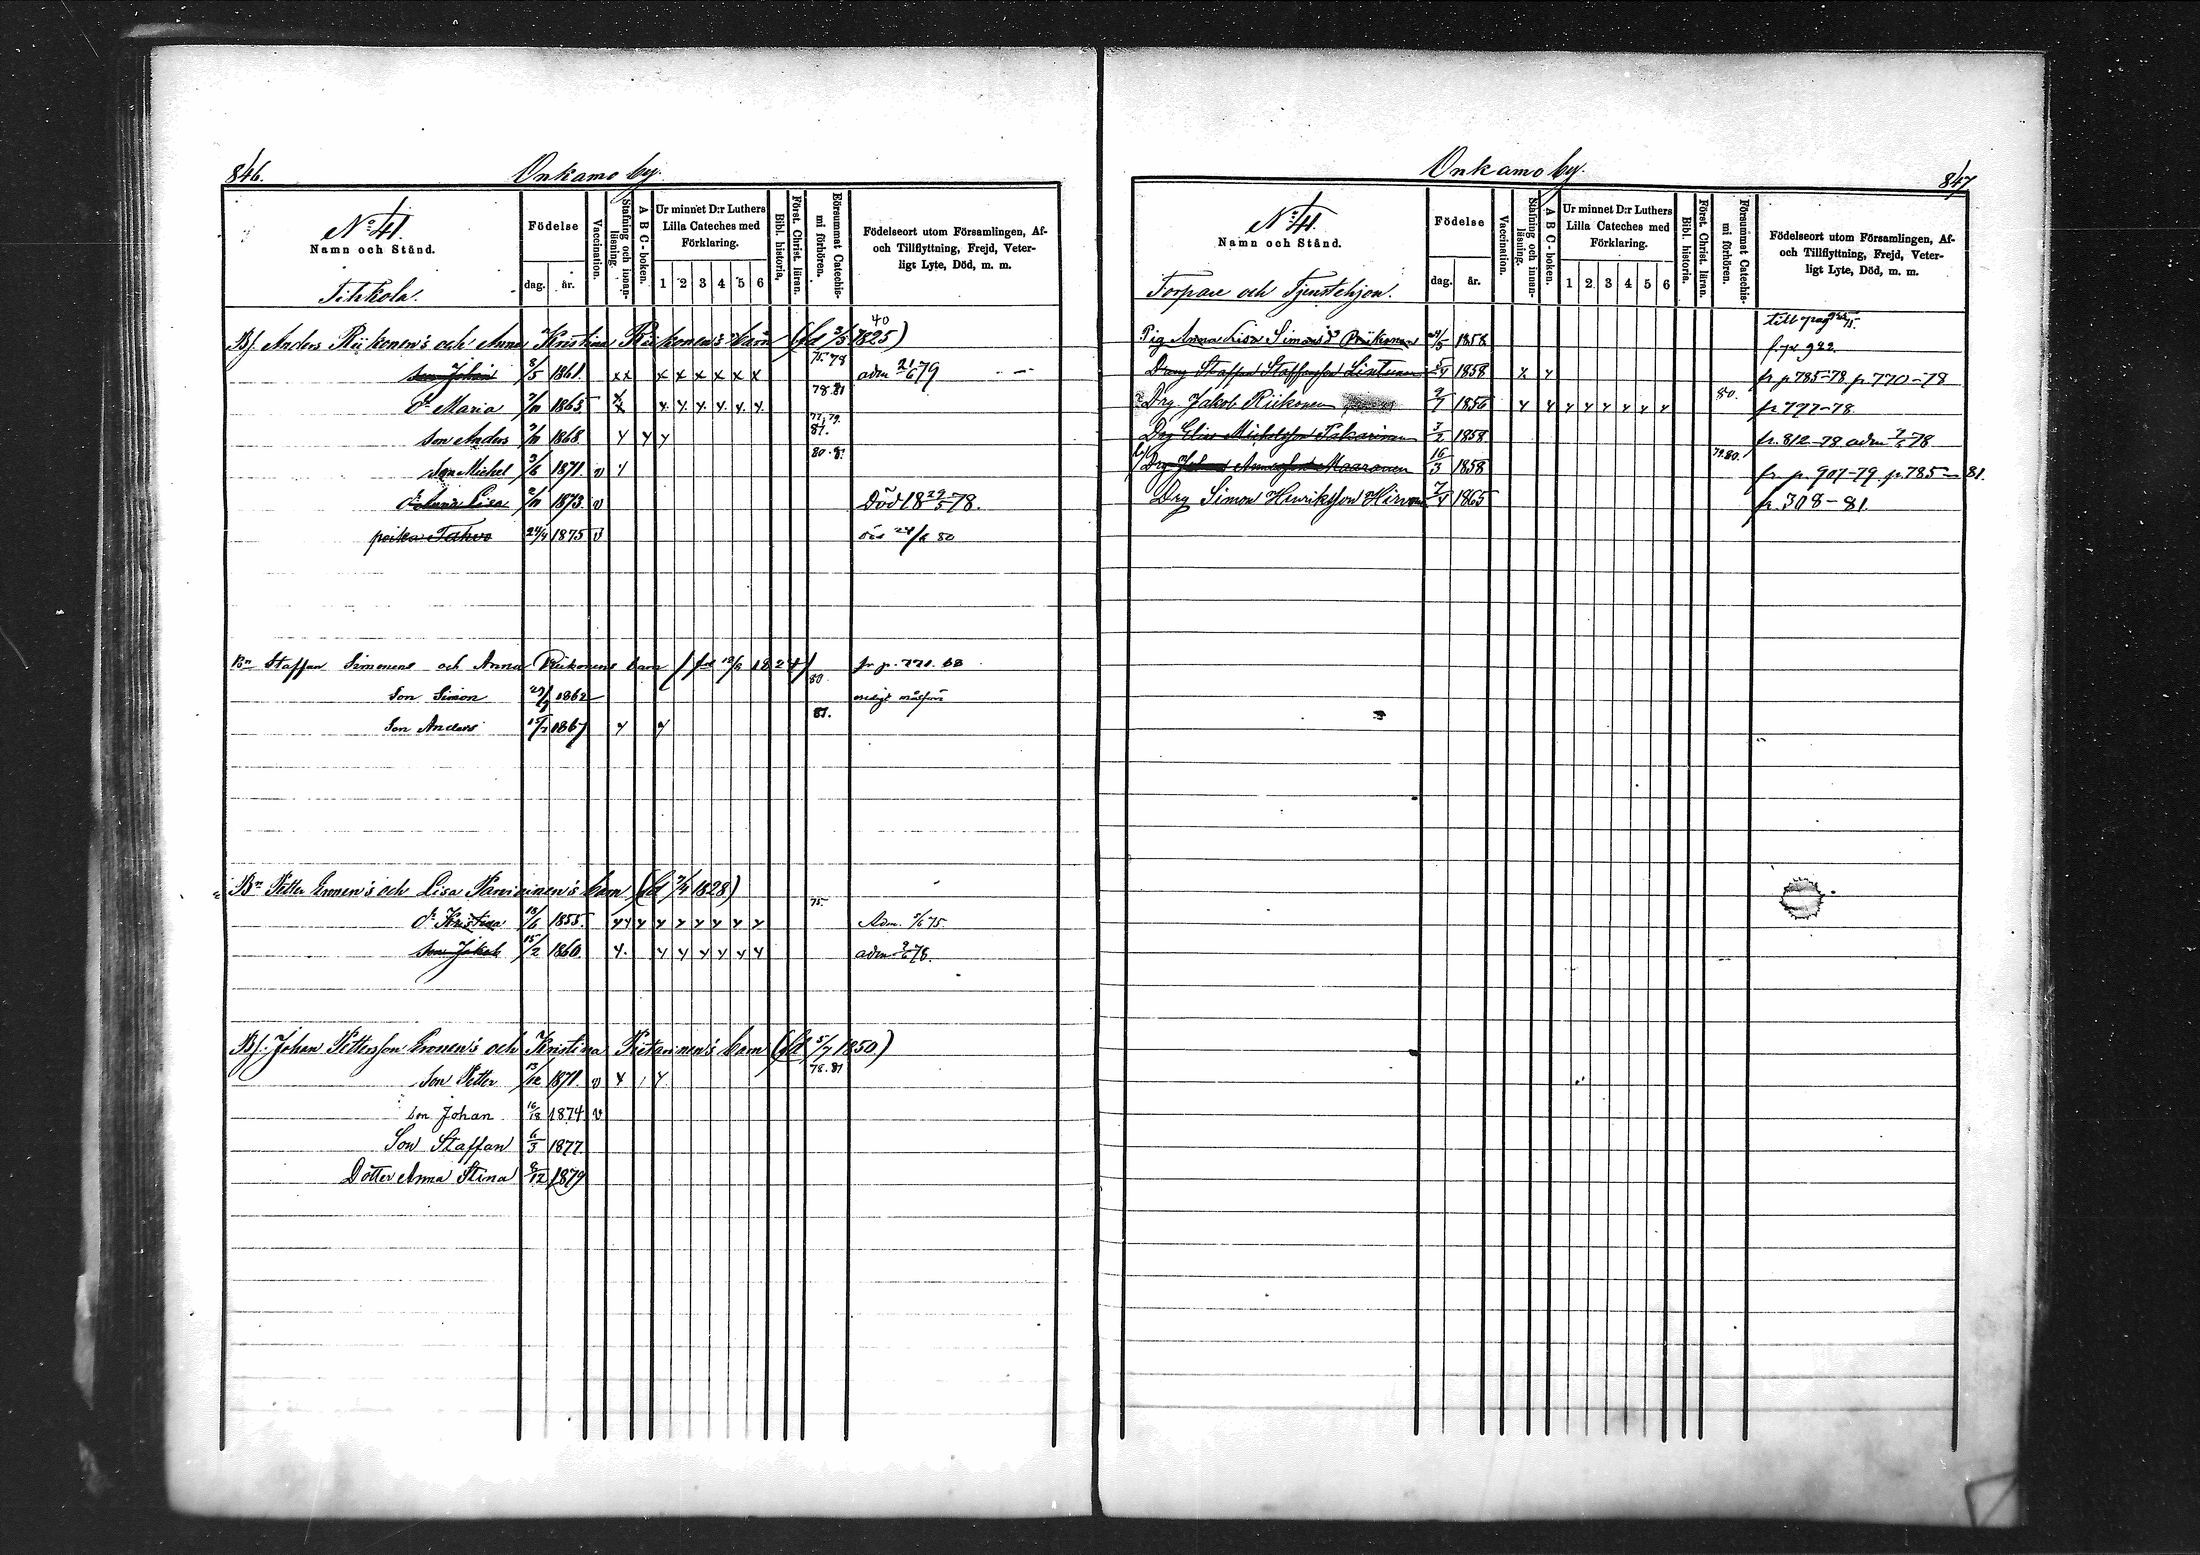 846.
Onkamo by.
No 41.
Namn och Stånd.
Födelse
dag.
år.
Vaccination.
Stafning och innan-läsning.
A B C-boken.
Ur minnet D:r Luthers
Lilla Cateches med
Förklaring.
1 2 3 4 5 6
Bibl. historia.
Först. Christ. läran.
Försummat Catechis-mi förhören.
Födelseort utom Församlingen, Af-
och Tillflyttning, Frejd, Veter-
ligt Lyte, Död, m. m.
Tihkola.
Bf. Anders Riikonen's och Anna Kristina Riikonen's barn (fd 3/5 1825)
40
son Johan 8/5 1861. x x x x x x x x 75. 78 adm 21/6 79
dr Maria 1863 y y y y y y 78. 81
son Anders 1868. y y y 77. 79. 81.
son Michel 3/6 1871. v y 80. 8.
dr Anna Lisa 1873. v Död 18 29/5 78.
poika Tahvo 24/4 1875 v 80
Bn Staffan Simonens och Anna Riikonens barn (fd 12/6 1824) fr p. 771. 68
Son Simon 1862 80
Son Anders 1867 y y 81.
Bn Petter Eronen's och Lisa Parviainen's barn (fd 1828)
dr Kristina 18/6 1855. y y y y y y y y y 75. Adm. 75.
son Jakob 15/2 1860. y. y y y y y y adm 2/6 78.
Bf. Johan Pettersson Eronen's och Kristina Pietarinen's barn (fd 5/7 1850)
Son Petter 13/12 1871. v y y 78. 81
son Johan 1874 v
Son Staffan 6/3 1877
Dotter Anna Stina 8/12 1879
Onkamo by.
847
No 41.
Namn och Stånd.
Födelse
dag.
år.
Vaccination.
Stafning och innan-läsning.
A B C-boken.
Ur minnet D:r Luthers
Lilla Cateches med
Förklaring.
1 2 3 4 5 6
Bibl. historia.
Först. Christ. läran.
Försummat Catechis-mi förhören.
Födelseort utom Församlingen, Af-
och Tillflyttning, Frejd, Veter-
ligt Lyte, Död, m. m.
Torpare och Tjenstehjon.
till pag 75.
Pig Anna Lisa Simonsd Riikonen 1858 fr. p 922.
Dreng Staffan Staffansson Lintunen 5/4 1858 x y fr p 785-78 p 770-78
Drg. Jakob Riikonen 9/7 1856 y y y y y y y y 80. fr 797-78.
Drg Elias Michelsson Pakarinen 3/2 1858 fr. 812-78 adm 78
Drg Johan Andersson Maaranen 16/3 1858 79. 80. fr p 907-79. p. 785-81.
Drg Simon Henriksson Hirvonen 7/4 1865 fr. 308-81.